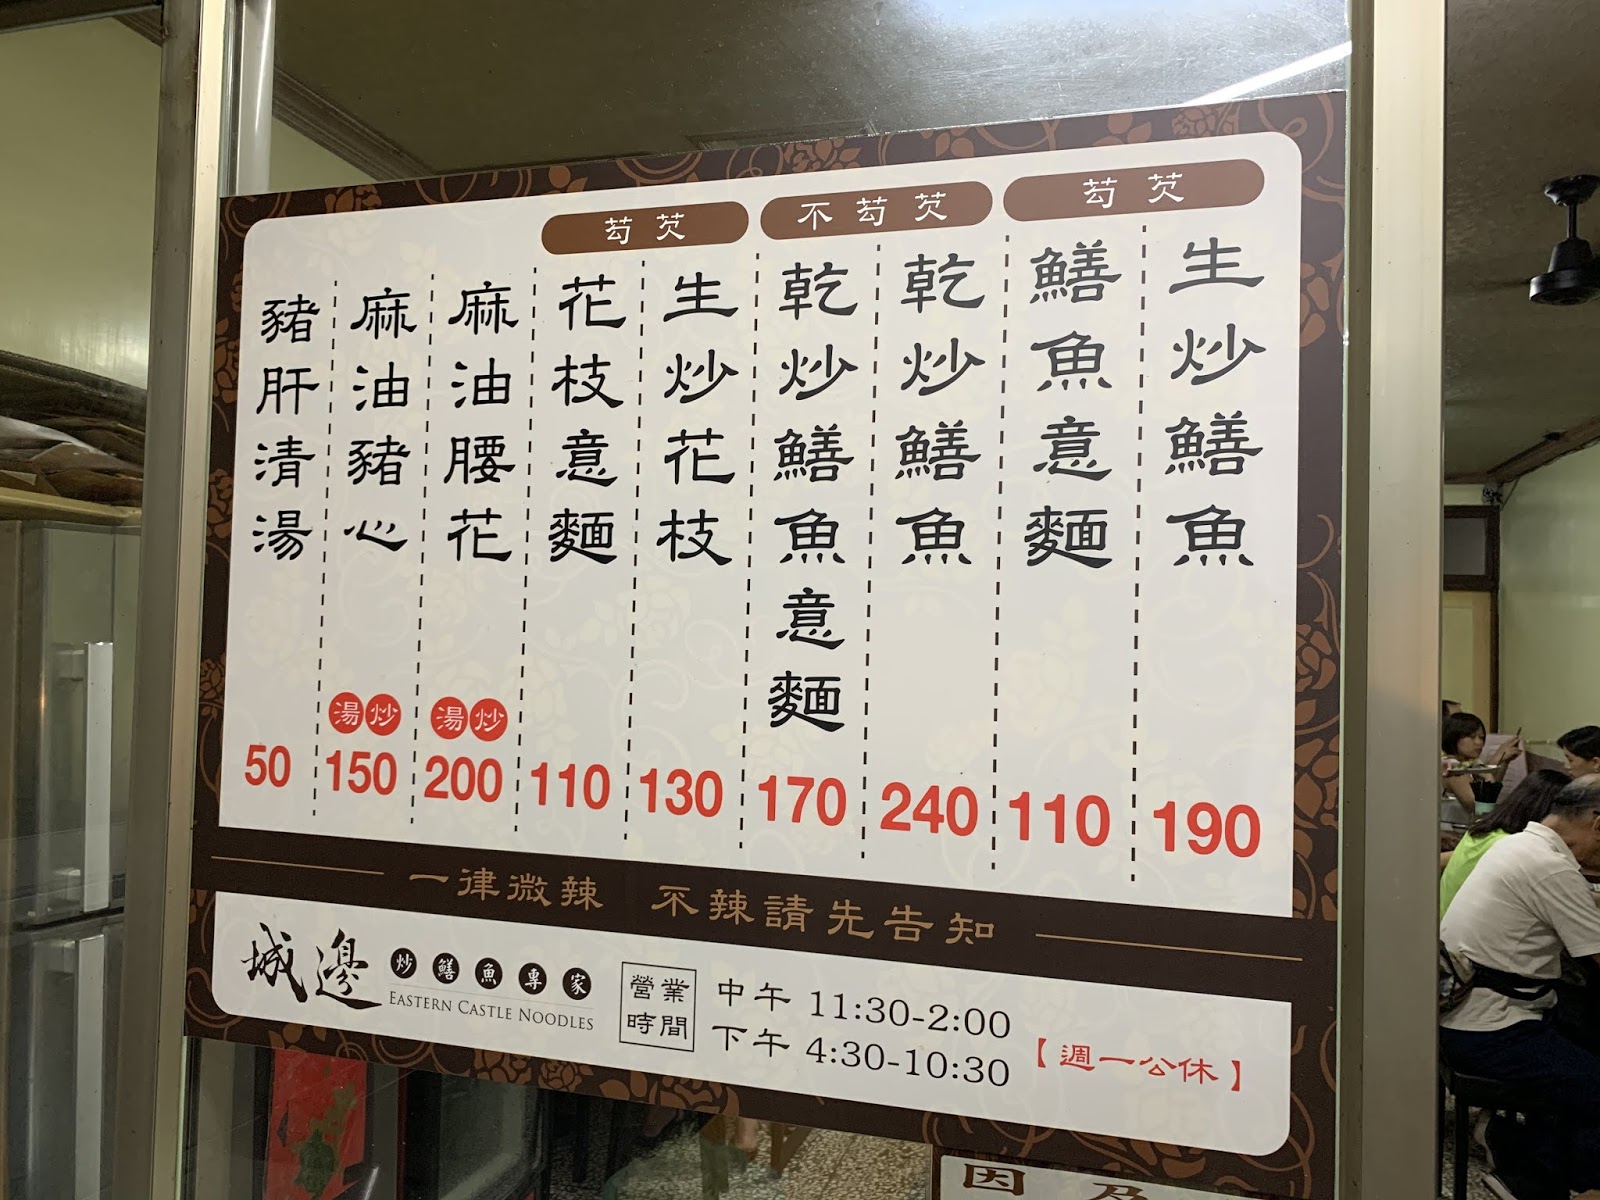 芶芡
生炒鱔魚
190
鱔魚意麵
110
不芶芡
乾炒鱔魚
240
乾炒鱔魚意麵
170
芶芡
生炒花枝
130
花枝意麵
110
麻油腰花
湯炒
200
麻油豬心
湯炒
150
豬肝清湯
50
一律微辣 不辣請先告知
城邊
炒鱔魚專家
EASTERN CASTLE NOODLES
營業時間
中午 11:30-2:00
下午 4:30-10:30
【週一公休】
因為